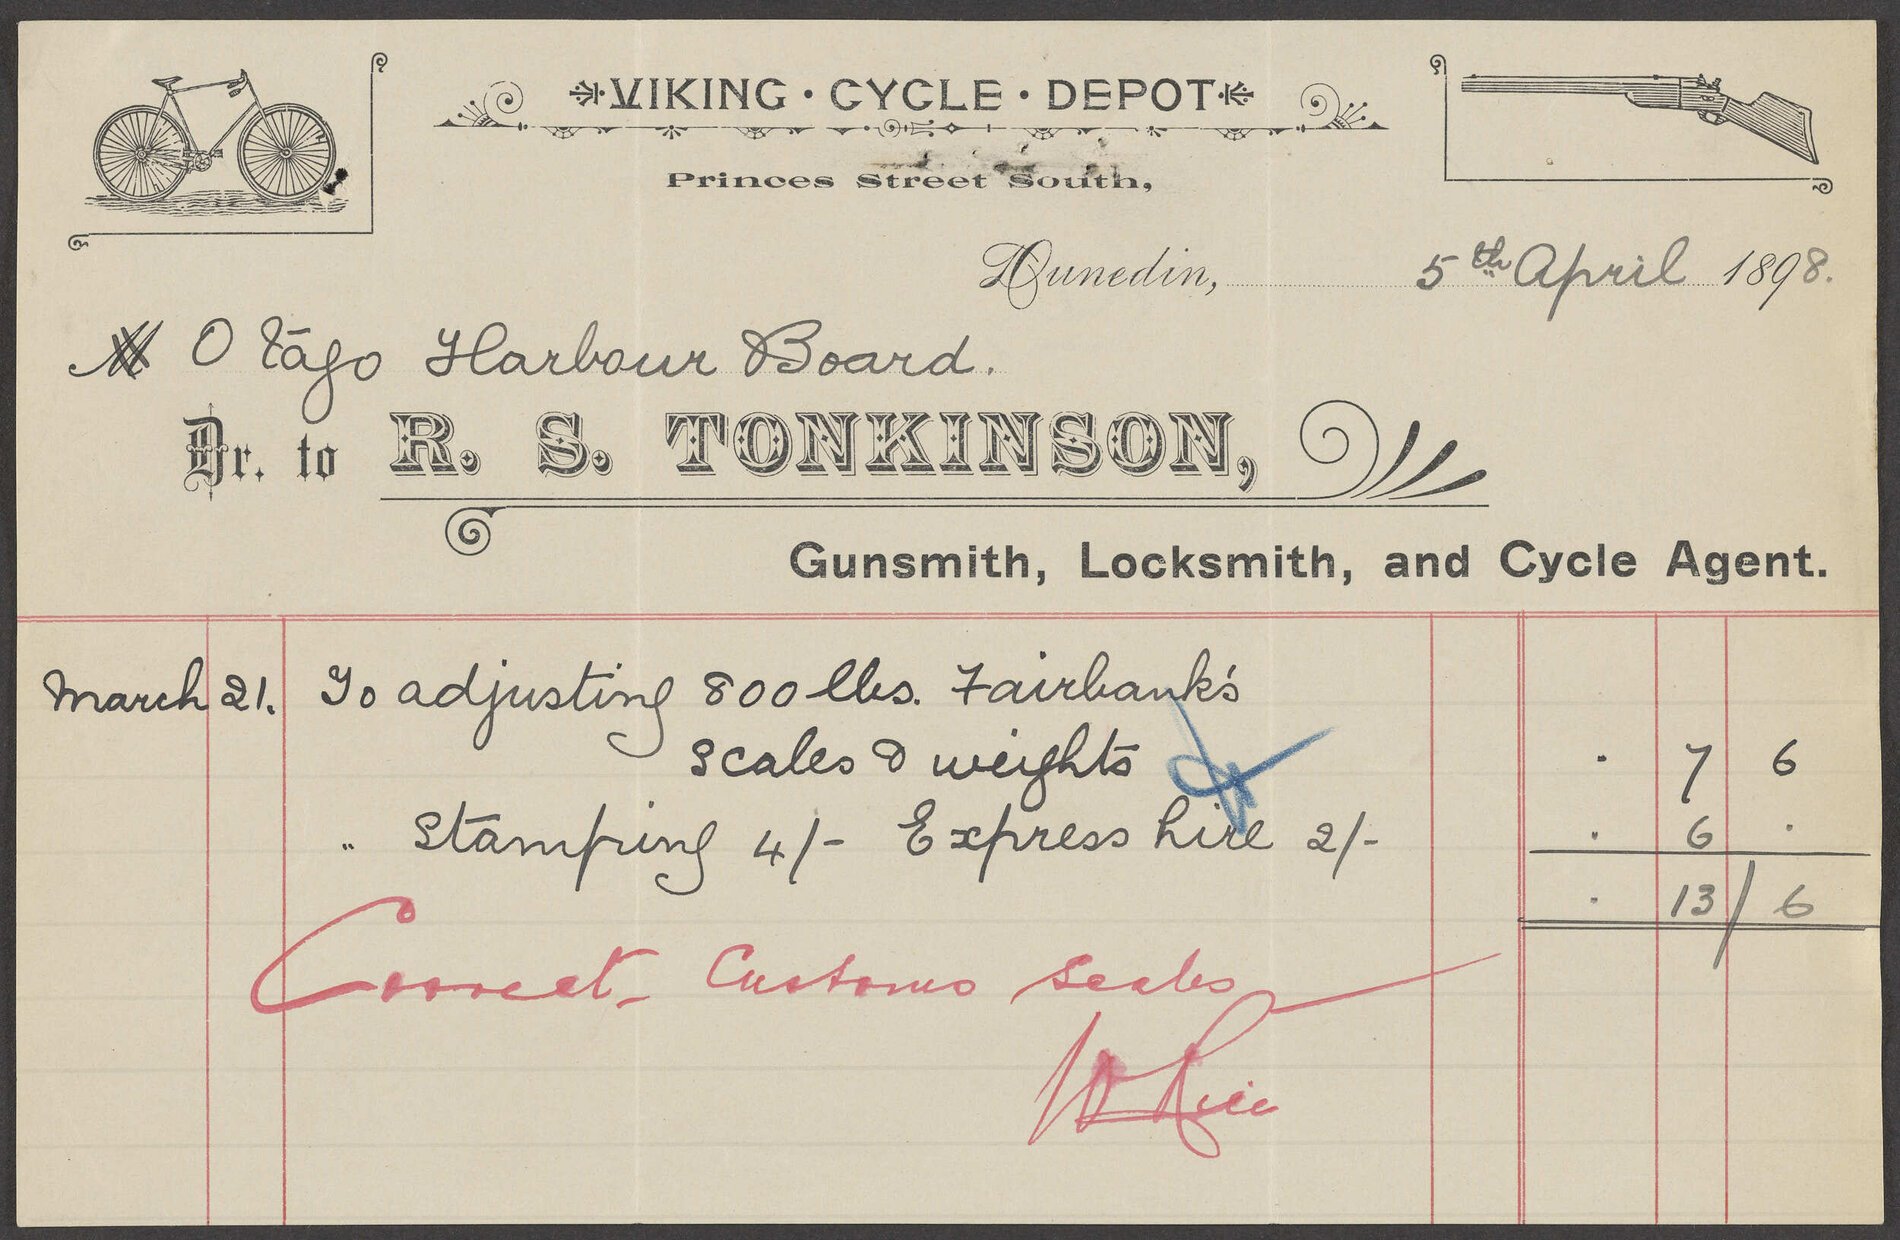 VIKING · CYCLE · DEPOT
Princes Street South,
Dunedin, 5th April 1898.
M Otago Harbour Board.
Dr. to R. S. TONKINSON,
Gunsmith, Locksmith, and Cycle Agent.
March 21. To adjusting 800 lbs. Fairbank's
scales & weights · 7 6
" Stamping 4/- Express hire 2/- · 6 ·
· 13/6
Correct - Customs Scales